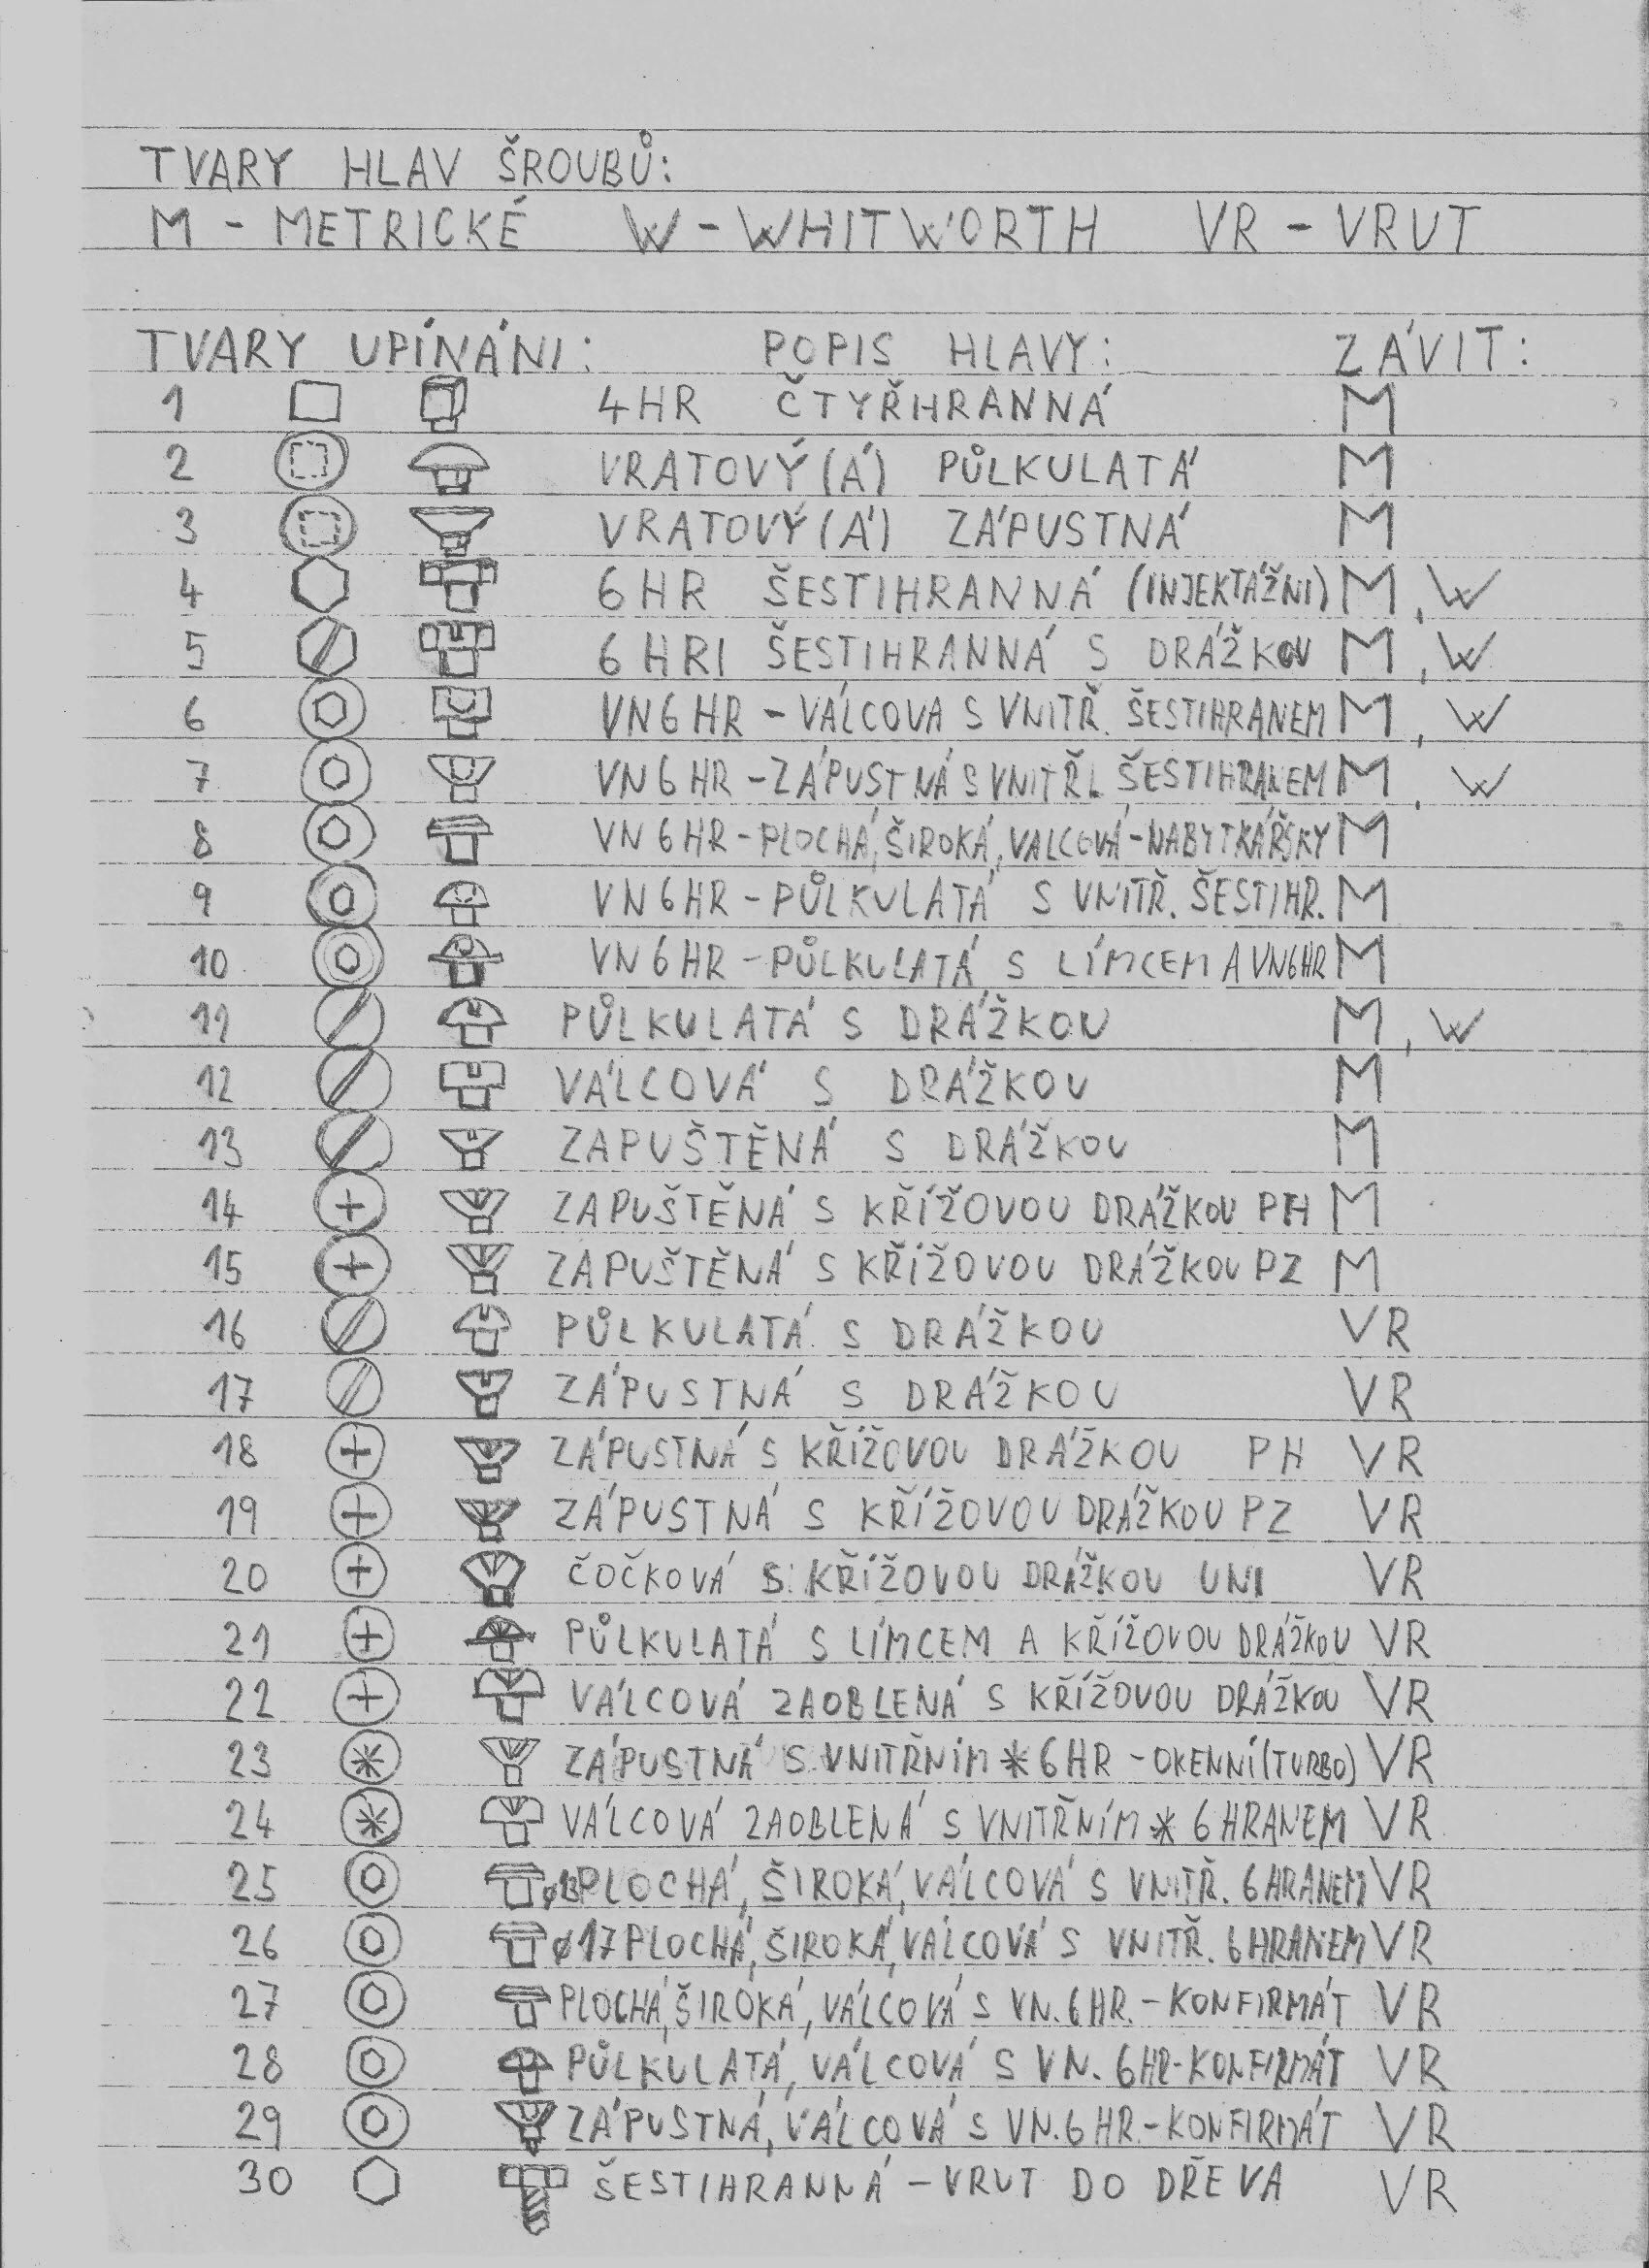 TVARY HLAV ŠROUBŮ:
M - METRICKÉ W - WHITWORTH VR - VRUT
TVARY UPÍNÁNI: POPIS HLAVY: ZÁVIT:
1 4HR ČTYŘHRANNÁ M
2 VRATOVÝ(Á) PŮLKULATÁ M
3 VRATOVÝ(Á) ZÁPUSTNÁ M
4 6HR ŠESTIHRANNÁ (INJEKTÁŽNI) M, W
5 6HRI ŠESTIHRANNÁ S DRÁŽKOU M, W
6 VN6HR - VÁLCOVA S VNITŘ. ŠESTIHRANEM M, W
7 VN6HR - ZÁPUSTNÁ S VNITŘ. ŠESTIHRANEM M, W
8 VN6HR - PLOCHÁ, ŠIROKÁ, VALCOVÁ - NABYTKÁŘSKY M
9 VN6HR - PŮLKULATÁ S VNITŘ. ŠESTIHR. M
10 VN6HR - PŮLKULATÁ S LÍMCEM A VN6HR M
11 PŮLKULATÁ S DRÁŽKOU M, W
12 VÁLCOVÁ S DRÁŽKOU M
13 ZAPUŠTĚNÁ S DRÁŽKOU M
14 ZAPUŠTĚNÁ S KŘÍŽOVOU DRÁŽKOU PH M
15 ZAPUŠTĚNÁ S KŘÍŽOVOU DRÁŽKOU PZ M
16 PŮLKULATÁ S DRÁŽKOU VR
17 ZÁPUSTNÁ S DRÁŽKOU VR
18 ZÁPUSTNÁ S KŘÍŽOVOU DRÁŽKOU PH VR
19 ZÁPUSTNÁ S KŘÍŽOVOU DRÁŽKOU PZ VR
20 ČOČKOVÁ S KŘÍŽOVOU DRÁŽKOU UNI VR
21 PŮLKULATÁ S LÍMCEM A KŘÍŽOVOU DRÁŽKOU VR
22 VÁLCOVÁ ZAOBLENÁ S KŘÍŽOVOU DRÁŽKOU VR
23 ZÁPUSTNÁ S VNITŘNÍM * 6HR - OKENNÍ (TURBO) VR
24 VÁLCOVÁ ZAOBLENÁ S VNITŘNÍM * 6HRANEM VR
25 ø13 PLOCHÁ, ŠIROKÁ, VÁLCOVÁ S VNITŘ. 6HRANEM VR
26 ø17 PLOCHÁ, ŠIROKÁ, VÁLCOVÁ S VNITŘ. 6HRANEM VR
27 PLOCHÁ, ŠIROKÁ, VÁLCOVÁ S VN. 6HR. - KONFIRMÁT VR
28 PŮLKULATÁ, VÁLCOVÁ S VN. 6HR - KONFIRMÁT VR
29 ZÁPUSTNÁ, VÁLCOVÁ S VN. 6HR. - KONFIRMÁT VR
30 ŠESTIHRANNÁ - VRUT DO DŘEVA VR